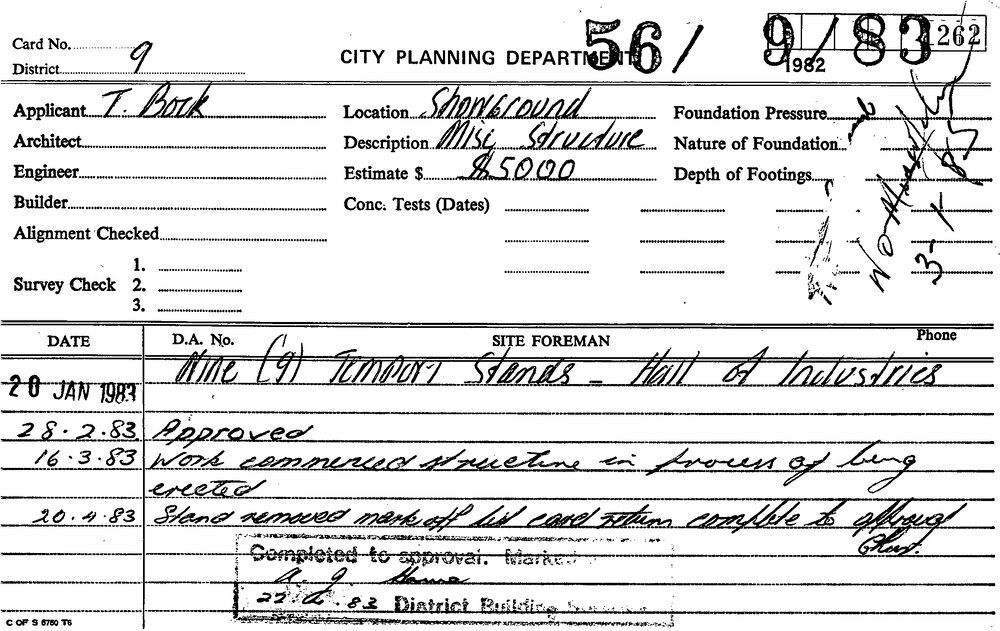 56/ 9/83
262
1982
Card No.
District 9
CITY PLANNING DEPARTMENT
Applicant T. Bock
Location Showground
Foundation Pressure
Architect
Description Misc Structure
Nature of Foundation
Engineer
Estimate $ $5000
Depth of Footings
Builder
Conc. Tests (Dates)
No
3-1-85
Alignment Checked
Survey Check
1.
2.
3.
DATE
D.A. No.
SITE FOREMAN
Phone
Nine (9) Tempory Stands - Hall of Industries
20 JAN 1983
28.2.83 Approved
16.3.83 Work commenced structure in process of being
erected
20.4.83 Stand removed mark off list card return complete to approval
Completed to approval. Marked
22 4 83 District Building
C OF S 5750 T6